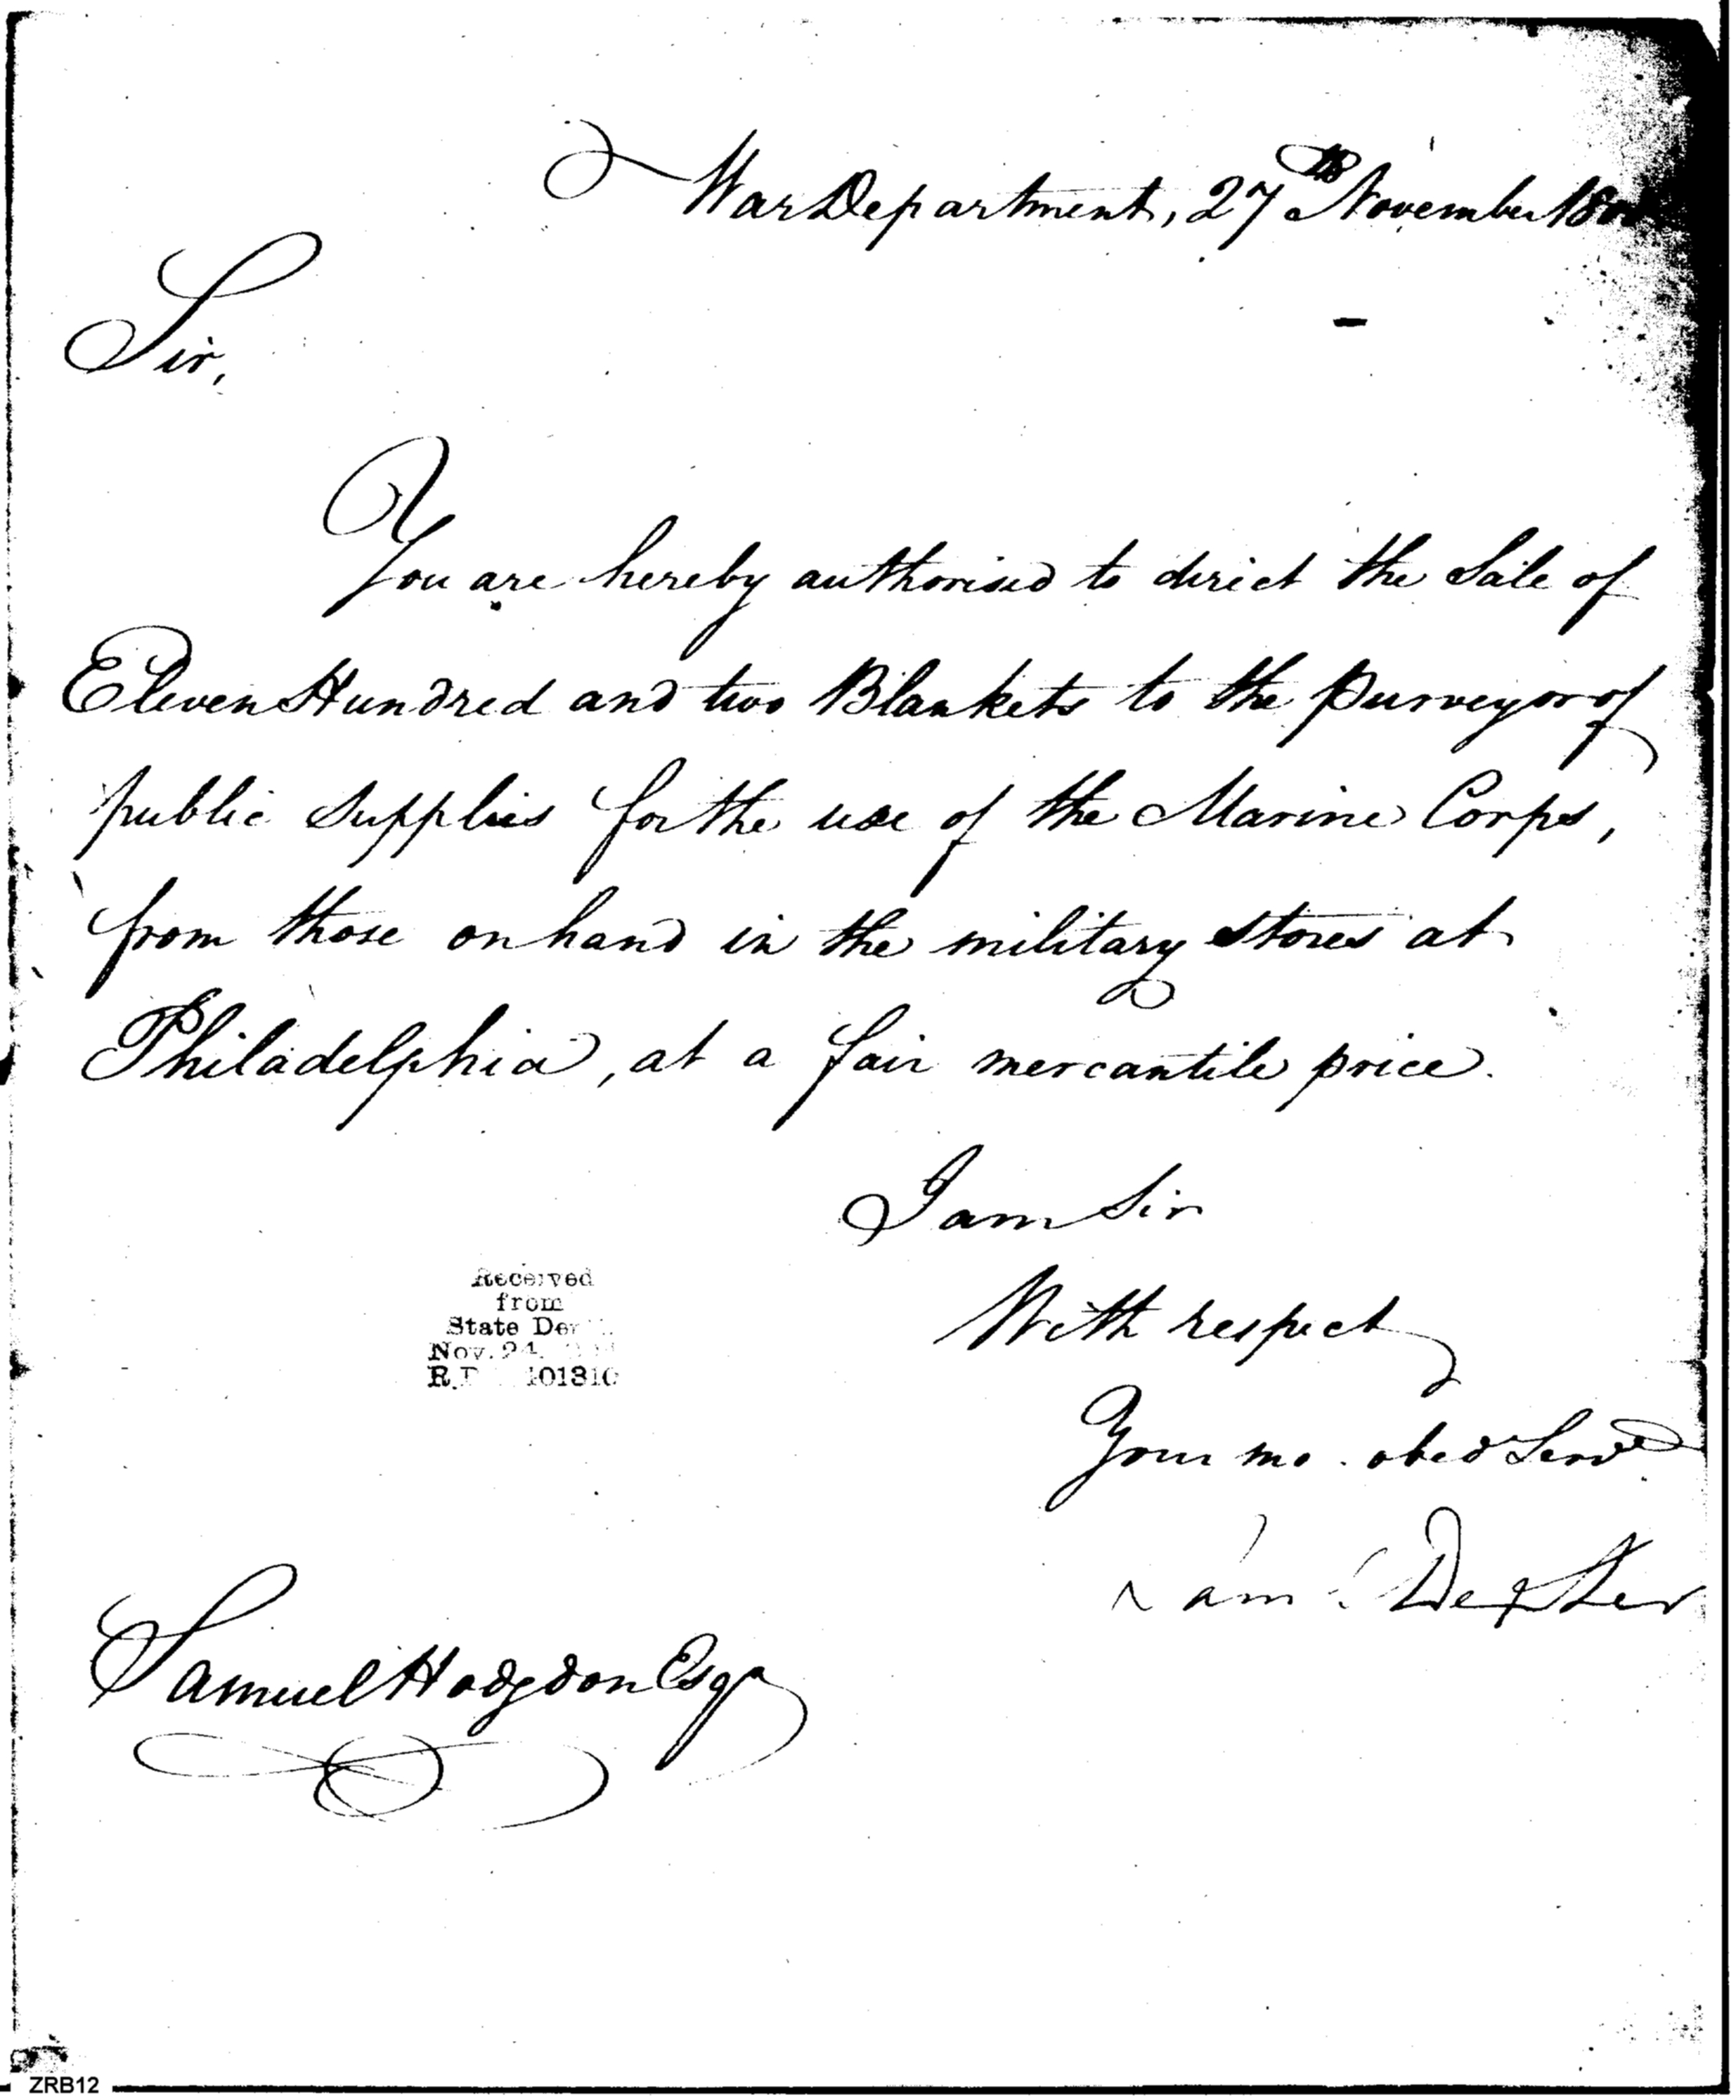 War Department, 27th November 18
Sir,
You are hereby authorised to direct the Sale of
Eleven Hundred and two Blankets to the Purveyor of
public Supplies for the use of the Marine Corps,
from those on hand in the military stores at
Philadelphia, at a fair mercantile price.
I am Sir
With respect
Your mo. obed Servt
Received
from
State
Nov. 24,
Sam Dexter
Samuel Hodgdon Esqr
ZRB12